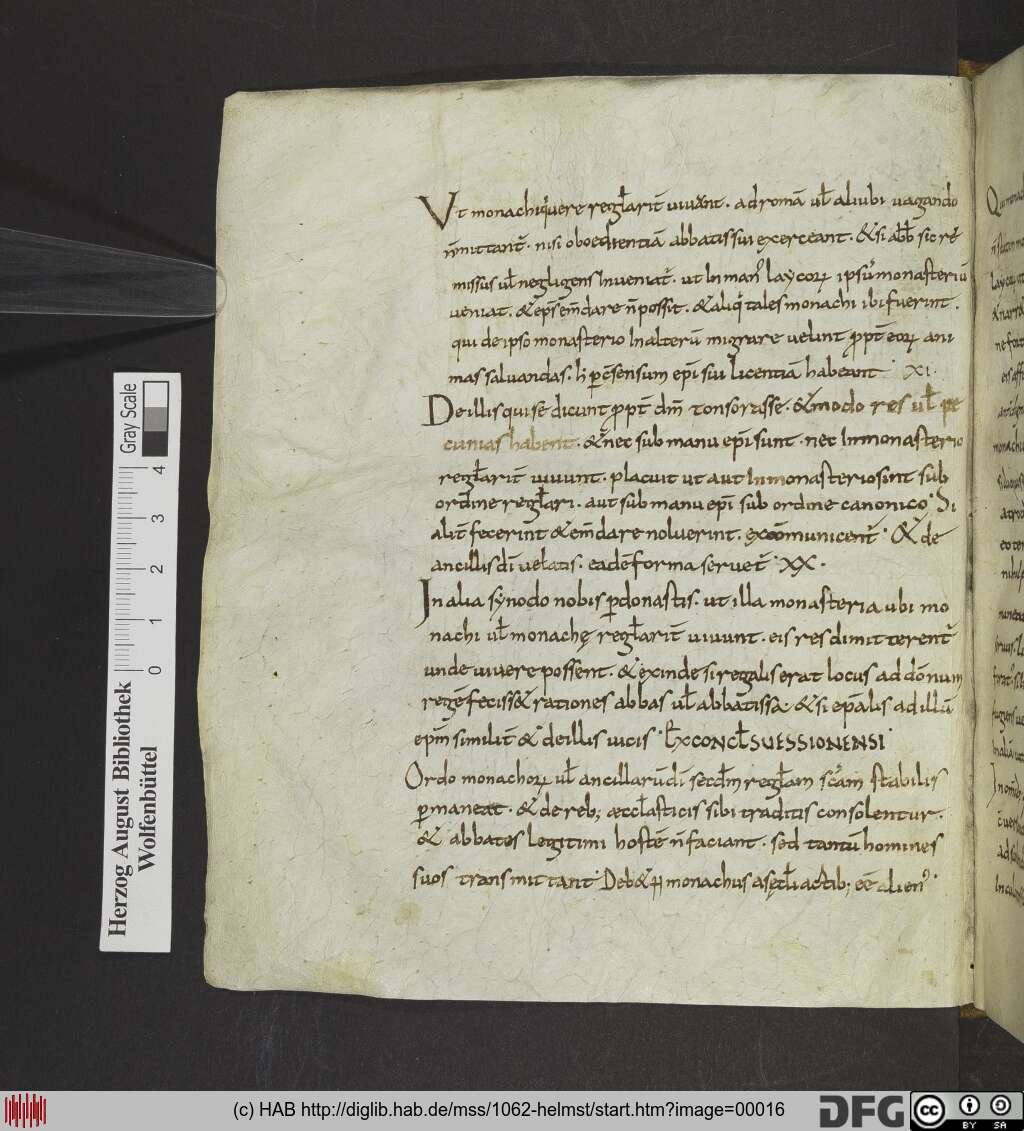 Vt monachi q̇ vere regl̄arit̄ vivant. ad romā ul̄ aliubi vagando
n̄ mittant᷑. nisi oboedientiā abbatis sui exerceant. & si abb̄ sic re
missus ul̄ negligens inveniat᷑. ut in man᷒ laycoꝝ ipsū monasteriū
veniat. & ep̄s em̄dare n̄ possit. & aliq̇ tales monachi ibi fuerint.
qui de ipso monasterio in alterū migrare velint ꝓpt̄ eoꝝ ani
mas salvandas. h̄ ꝑ c̄sensum epī sui licentiā habeant XI.
De illis qui se dicunt ꝓpt̄ dm̄ tonsorasse. & modo res ul̄ pe
cunias habent. & nec sub manu epī sunt. nec in monasterio
regl̄arit̄ vivunt. placuit ut aut in monasterio sint sub
ordine regl̄ari. aut sub manu epī sub ordine canonico. Si
alit̄ fecerint & em̄dare noluerint. excōmunicent᷑. & de
ancillis dī velatis. eadē forma servet᷑ XX.
In alia synodo nobis ꝑdonastis. ut illa monasteria ubi mo
nachi ul̄ monachę regl̄arit̄ vivunt. eis res dimitterent᷑
unde vivere possent. & exinde si regalis erat locus ad dōnum
regē feciss& rationes abbas ul̄ abbatissa. & si ep̄alis ad illū
epm̄ similit̄ & de illis vicis. EX CONCL̄ SUESSIONENSI
Ordo monachoꝝ ul̄ ancillarū dī secdm̄ regl̄am sc̄am stabilis
ꝑmaneat. & de reb; æccl̄asticis sibi traditis consolentur.
& abbates legitimi hostē n̄ faciant. sed tantū homines
suos transmittant. Deb& monachus a sęcl̄i actib; eē alien᷒.
Gray Scale
4
3
2
1
0
Herzog August Bibliothek
Wolfenbüttel
(c) HAB http://diglib.hab.de/mss/1062-helmst/start.htm?image=00016
DFG
cc BY SA